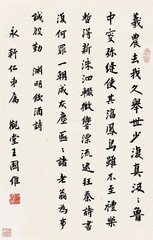 羲農去我久舉世少復真汲〻魯
中叟彌縫使其淳鳳鳥雖不至禮樂
暫得新洙泗輟微響漂流逮狂秦詩書
復何罪一朝成灰塵區〻諸老翁為事
誠殷勤 淵明飲酒詩
仁弟屬 觀堂王國維